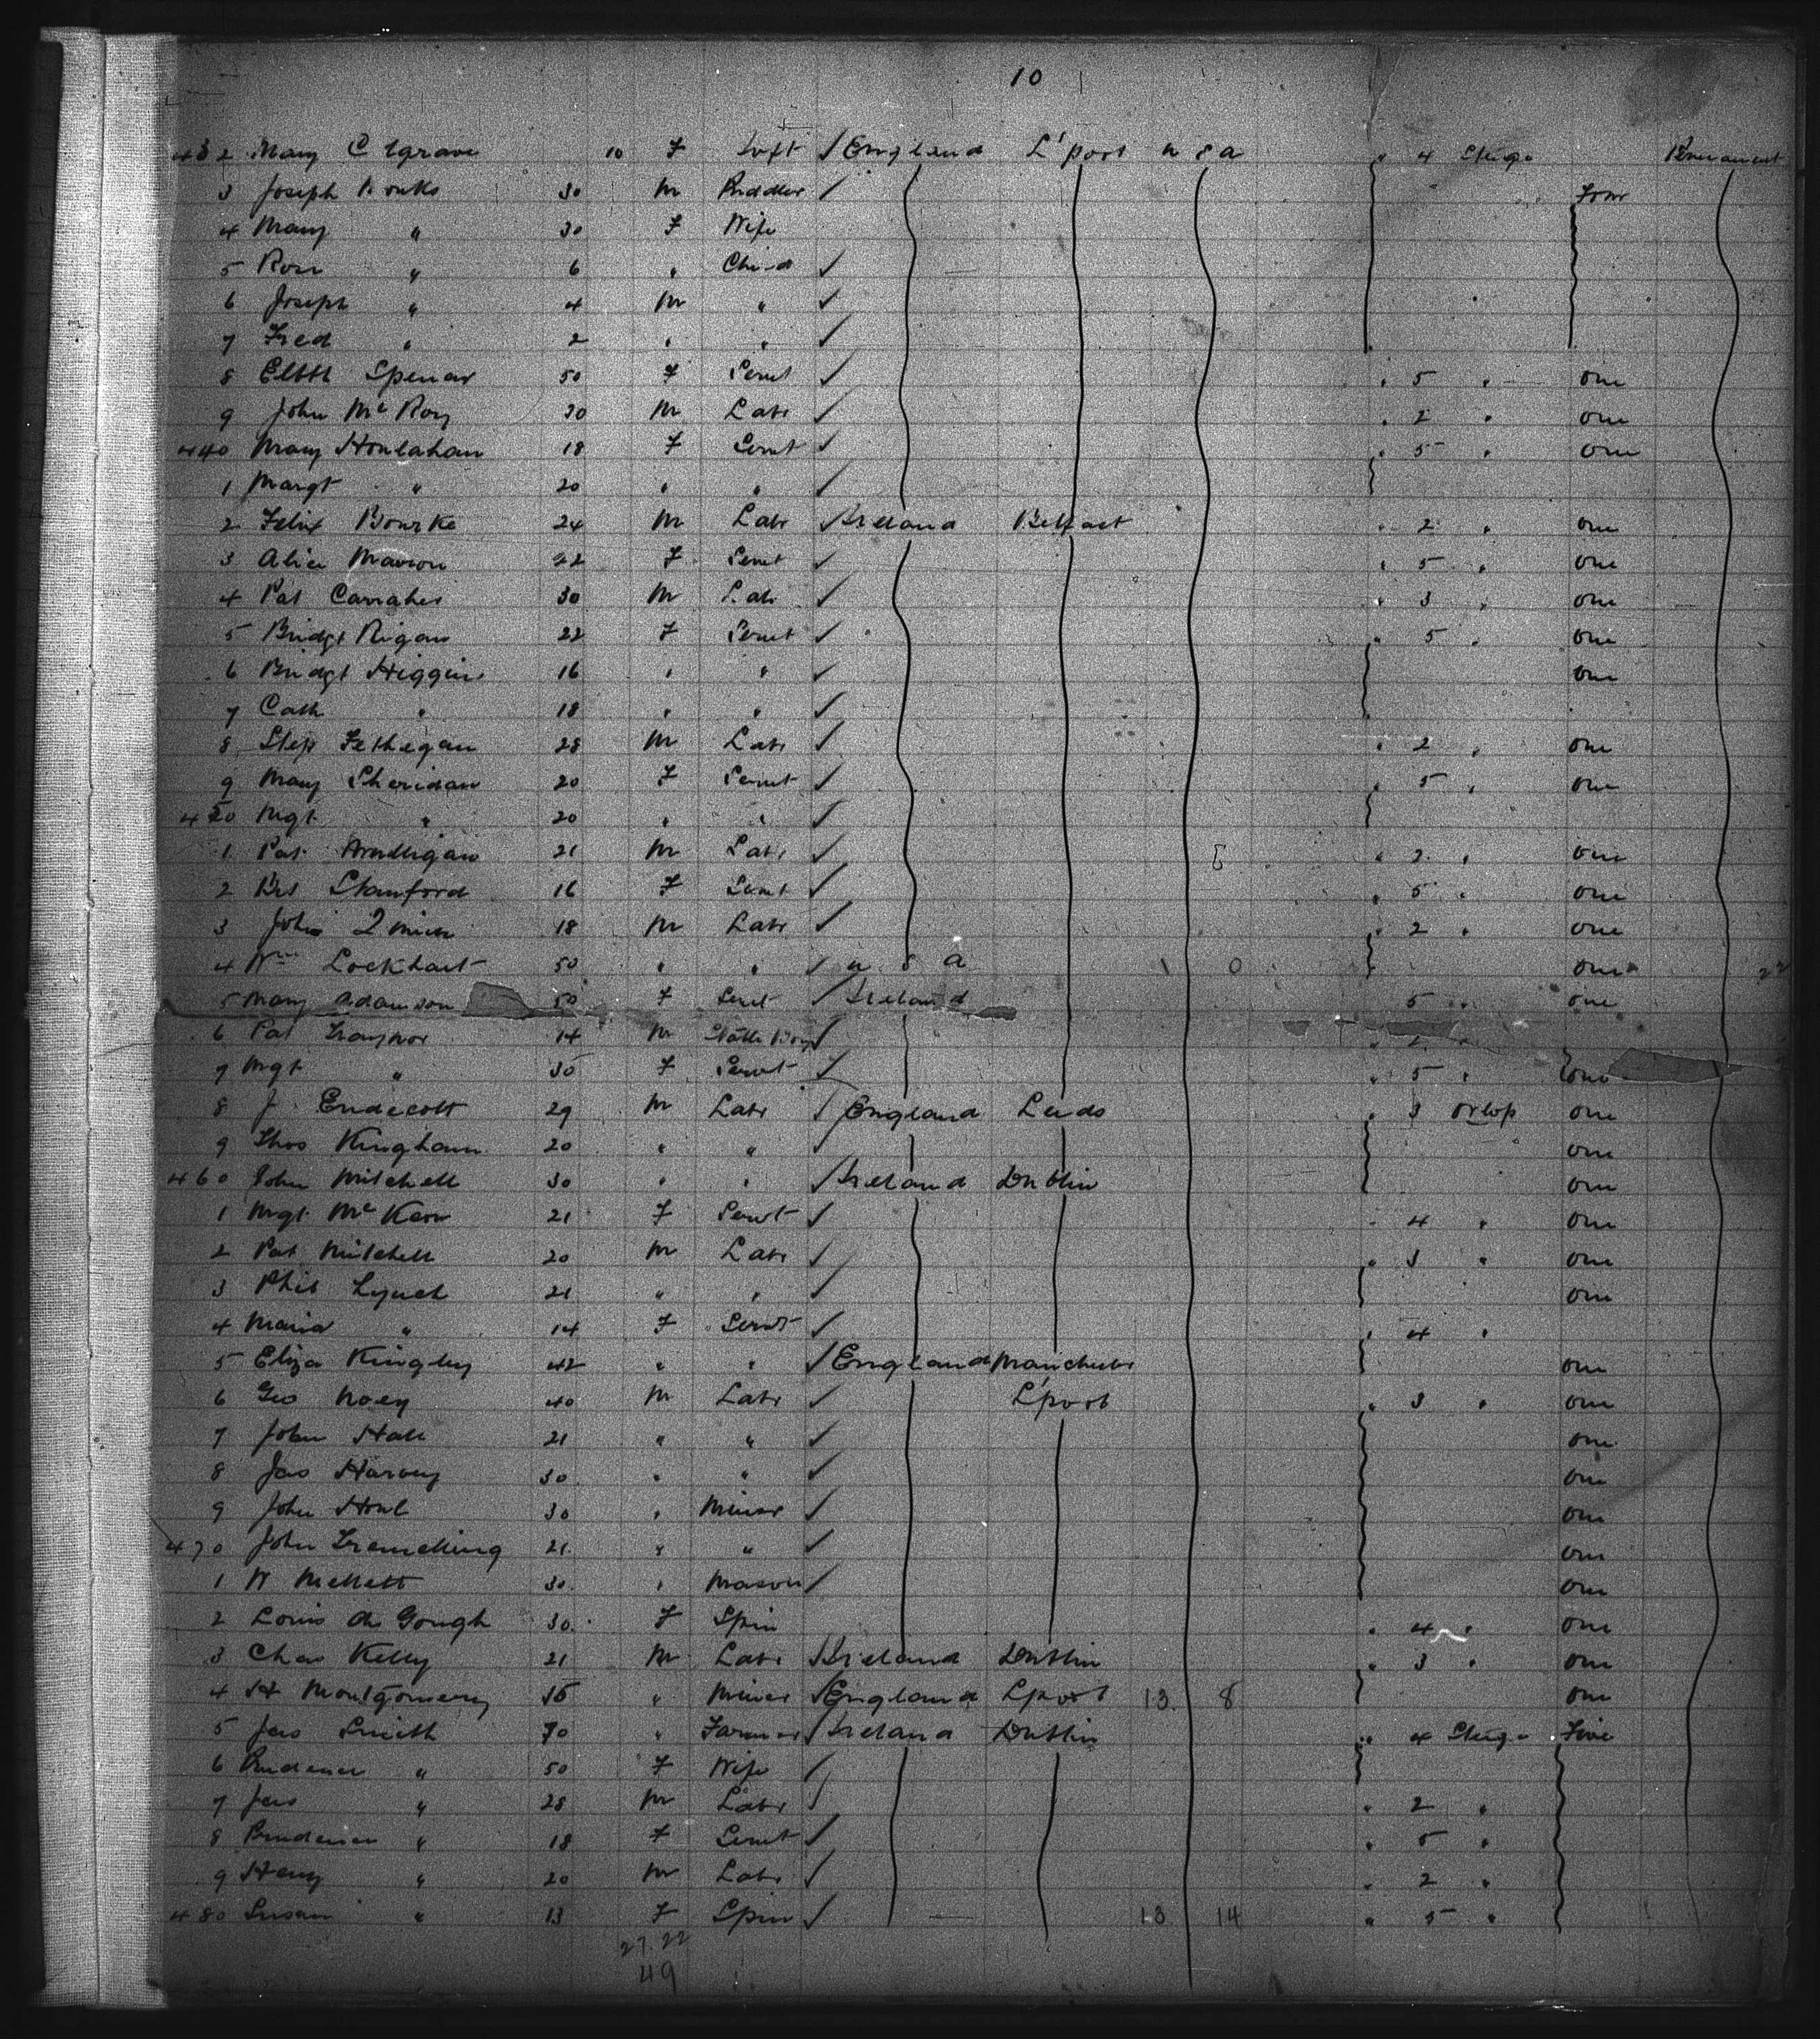 10
432 Mary Colgrave 10 F Inft ✓ England L'pool U S A " 4 Stege Permanent
3 Joseph 30 M Puddler ✓ Four
4 Mary " 30 F Wife
5 Rose " 6 " Child ✓
6 Joseph " 4 M " ✓
7 Fred " 2 " " ✓
8 Elbth Spencer 50 F Servt ✓ " 5 " one
9 John McRoy 30 M Labr ✓ " 2 " one
440 Mary Houlahan 18 F Servt ✓ " 5 " one
1 Margt " 20 " " ✓
2 Felix Bourke 24 M Labr ✓ Ireland Belfast " 2 " one
3 Alice 22 F Servt ✓ " 5 " one
4 Pat Carraher 30 M Labr ✓ " 3 " one
5 Bridgt Rigan 22 F Servt ✓ " 5 " one
6 Bridgt Higgins 16 " " ✓ one
7 Cath " 18 " " ✓
8 Step Fethegan 28 M Labr ✓ " 2 " one
9 Mary Sheridan 20 F Servt ✓ " 5 " one
450 Mgt " 20 " " ✓
1 Pat 21 M Labr ✓ " 2 " one
2 Stanford 16 F Servt ✓ " 5 " one
3 John Quinn 18 M Labr ✓ " 2 " one
4 Wm Lockhart 50 " " ✓ U S A 1 0 one 22
5 Mary Adamson 50 F Servt ✓ Ireland 5 " one
6 Pat Traynor 14 M Stable Boy ✓
7 Mgt " 35 F Servt ✓ " 5 " one
8 J Endecott 29 M Labr ✓ England Leeds " 3 Orlop one
9 Thos Kingham 20 " " ✓ one
460 John Mitchell 30 " " ✓ Ireland Dublin one
1 Mgt McKeon 21 F Servt ✓ " 4 " one
2 Pat Mitchell 20 M Labr ✓ " 3 " one
3 Phil Lynch 21 " " ✓ one
4 Maria " 14 F Servt ✓ " 4 "
5 Eliza Kingley 42 " " ✓ England Manchester one
6 Geo Noey 40 M Labr ✓ L'pool " 3 " one
7 John Hall 21 " " ✓ one
8 Jas Harvey 30 " " ✓ one
9 John 30 " Miner ✓ one
470 John Tremelling 21 " " ✓ one
1 W Mellett 30 " Mason ✓ one
2 Louis de Gough 30 F Spin " 4 " one
3 Chas Kelly 21 M Labr ✓ Ireland Dublin " 3 " one
4 H Montgomery 35 " Miner ✓ England Lpool 13 8 one
5 Jas Smith 70 " Farmer ✓ Ireland Dublin " 4 Stege Five
6 Prudence " 50 F Wife ✓
7 Jas " 28 M Labr ✓ " 2 "
8 Prudence " 18 F Servt ✓ " 5 "
9 Henry " 20 M Labr ✓ " 2 "
480 Susan " 13 F Spin ✓ 13 14 " 5 "
27.22
49